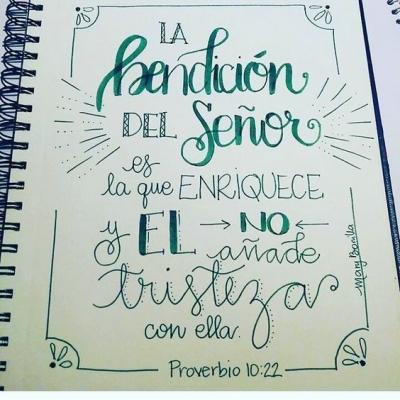 LA
bendición
DEL Señor
es
la que ENRIQUECE
y EL NO
añade
tristeza
con ella.
Proverbio 10:22
Mary Bonilla